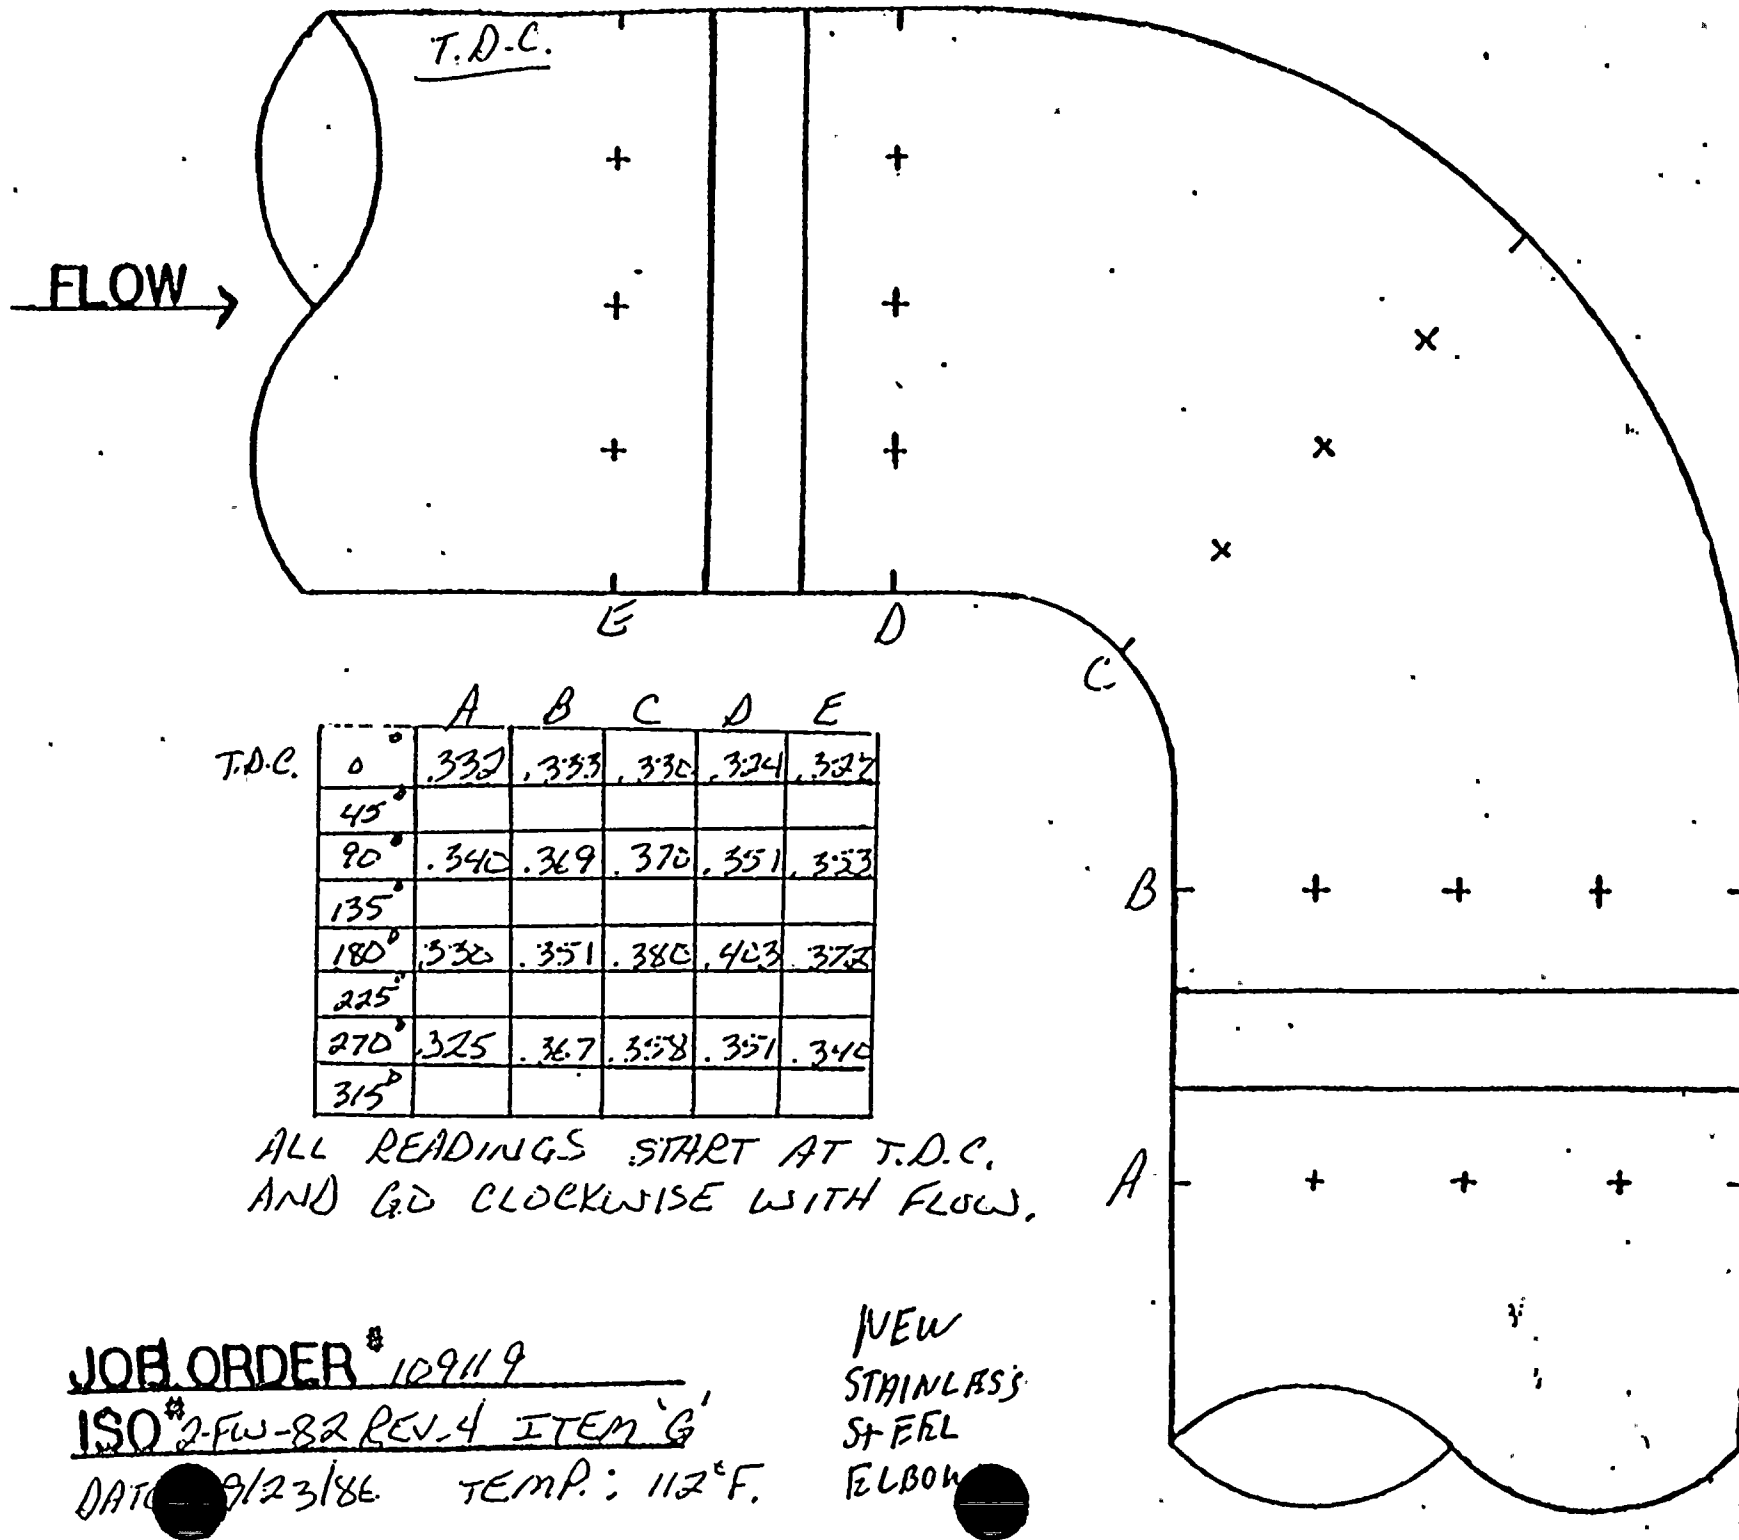 T.D.C.
FLOW
E
D
C
A B C D E
T.D.C. 0° .332 .333 .330 .324 .327
45°
90° .340 .369 .370 .351 .353
135°
180° .330 .351 .380 .403 .372
225°
270° .325 .367 .358 .351 .340
315°
B
A
ALL READINGS START AT T.D.C.
AND GO CLOCKWISE WITH FLOW.
JOB ORDER # 109119
ISO # 2-FW-82 REV-4 ITEM 'G'
9/23/86 TEMP.: 112°F.
NEW
STAINLESS
STEEL
ELBOW